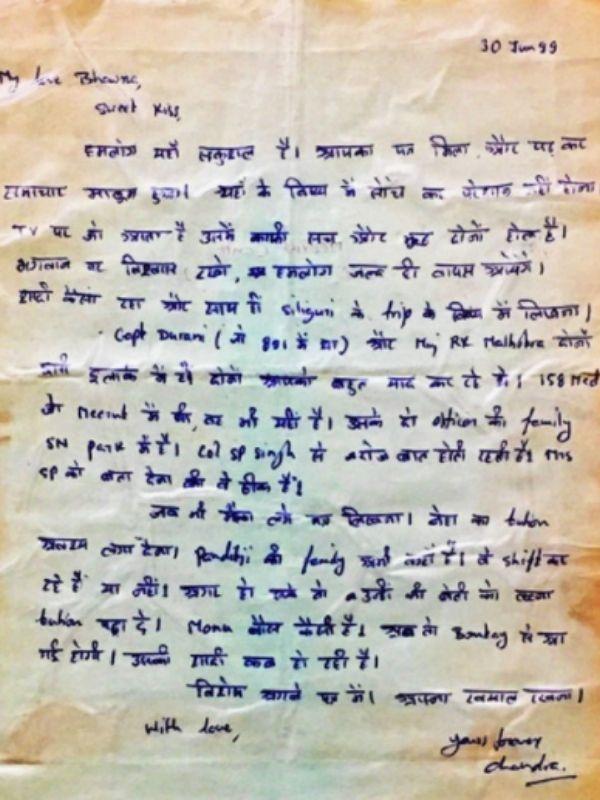 30 Jun 99
My love Bhawna,
Sweet Kiss,
हमलोग यहाँ सकुशल है। आपका पत्र मिला और पढ़ कर
समाचार मालूम हुआ। यहाँ के विषय में सोंच कर परेशान नहीं होना
TV पर जो आता है उनमें काफी सच और झूठ दोनों होता है।
भगवान पर विश्वास रखो, हमलोग जल्द ही वापस आयेंगे।
शादी कैसा रहा और साथ ही Siliguri के trip के विषय में लिखना।
Capt Durani (जो 891 में था) और Maj RK Malhotra दोनों
इसी इलाके में है। दोनों आपको बहुत याद कर रहे थे। 158 Med
जो Meerut में थी, वह भी यहीं है। उसके दो officer की family
SN Park में है। Col SP Singh से बात होती रहती है। Mrs
SP को बता देना की वे ठीक हैं।
जब भी मौका लगे पत्र लिखना। नेहा का tution
लगा देना। Panditji की family अभी कहाँ है। वे shift कर
रहे हैं या नहीं। अगर हो सके तो उनकी बेटी को
tution पढ़ा दे। Monu कैसी है। अब तो Bombay से आ
गई होगी। उसकी शादी कब हो रही है।
विशेष अगले पत्र में। अपना ख्याल रखना।
With love,
yours forever
Chandra.